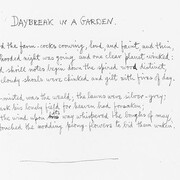 DAYBREAK IN A GARDEN.
d the farm-cocks crowing, loud, and faint, and thin,
hooded night was going, and one clear planet winked:
d shrill notes begin down the spired wood distinct,
cloudy shoals were chinked and gilt with fires of day.
-misted was the weald; the lawns were silver-grey;
ark his lonely field for heaven had forsaken;
the wind upon its way whispered the boughs of may,
touched the nodding peony-flowers to bid them waken.